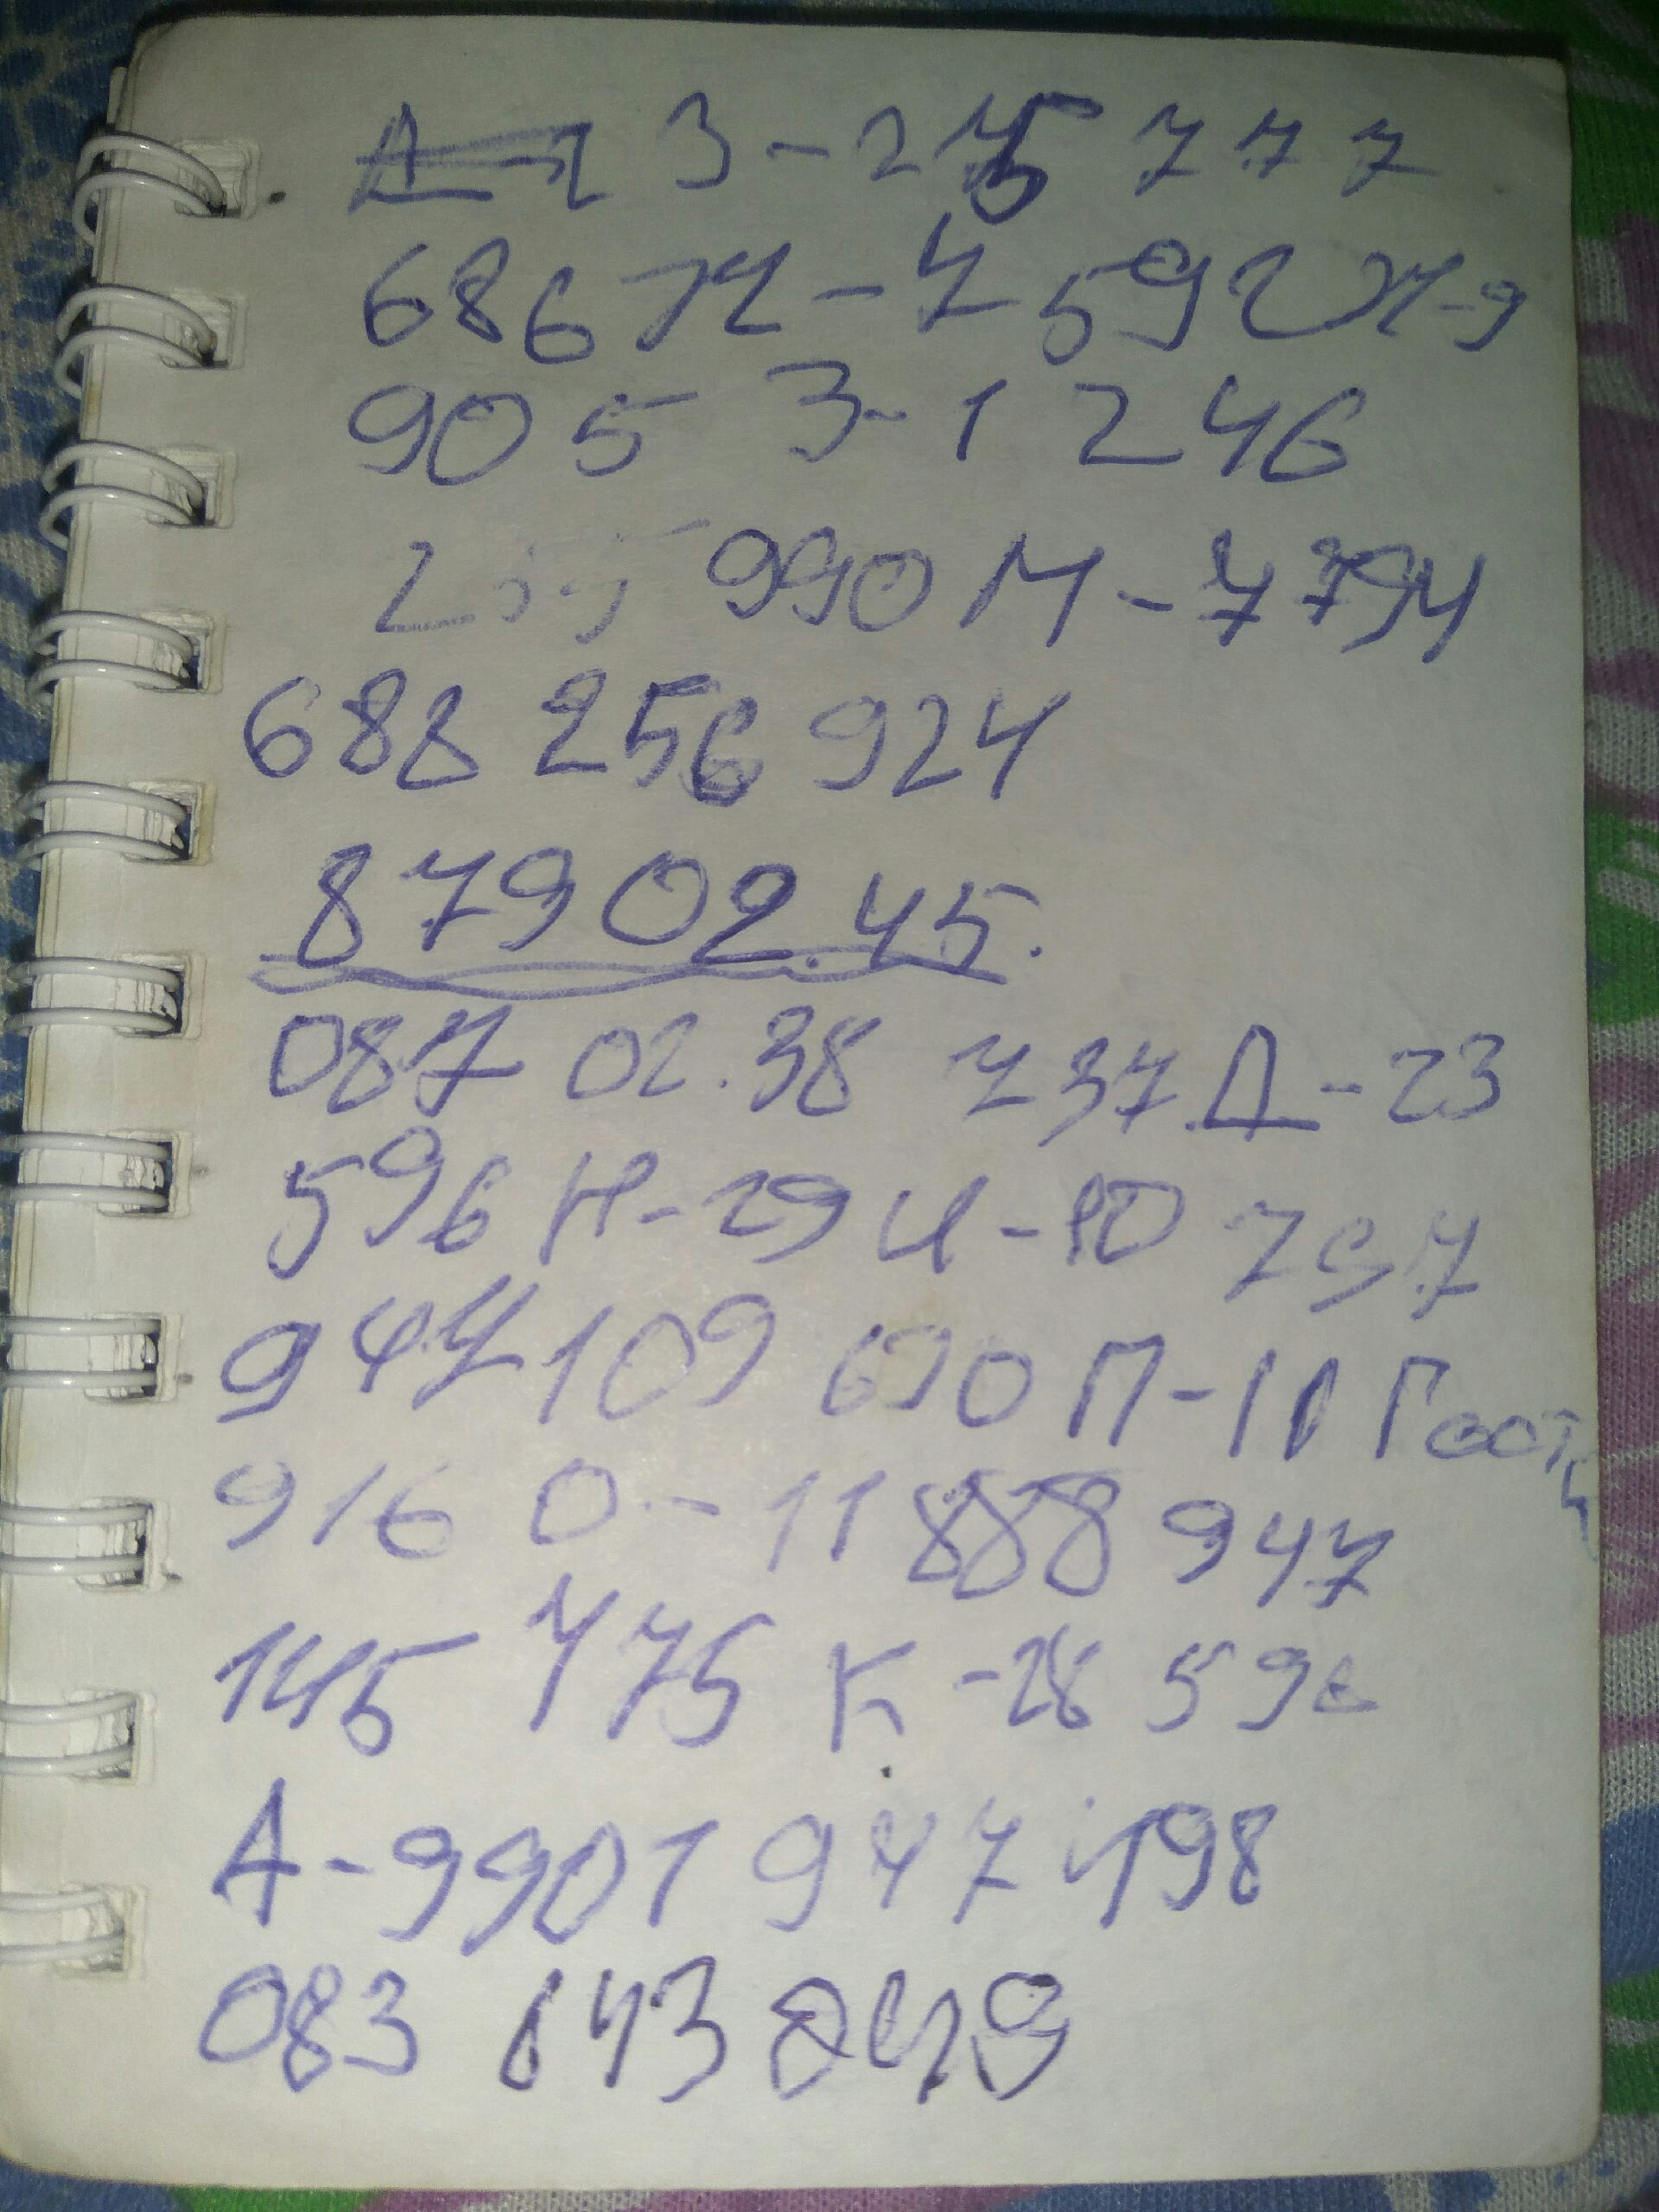 З-275 777
686 Л-7 592 Ж-9
905 З-1 246
990 М-7 794
688 256 924
87902.45.
087 02.38 737 Д-23
596 Н-29 И-10 797
947 109 690 П-11 Гость
916 О-11 888 947
145 775 К-28 596
А-9901 947 198
083 643 849